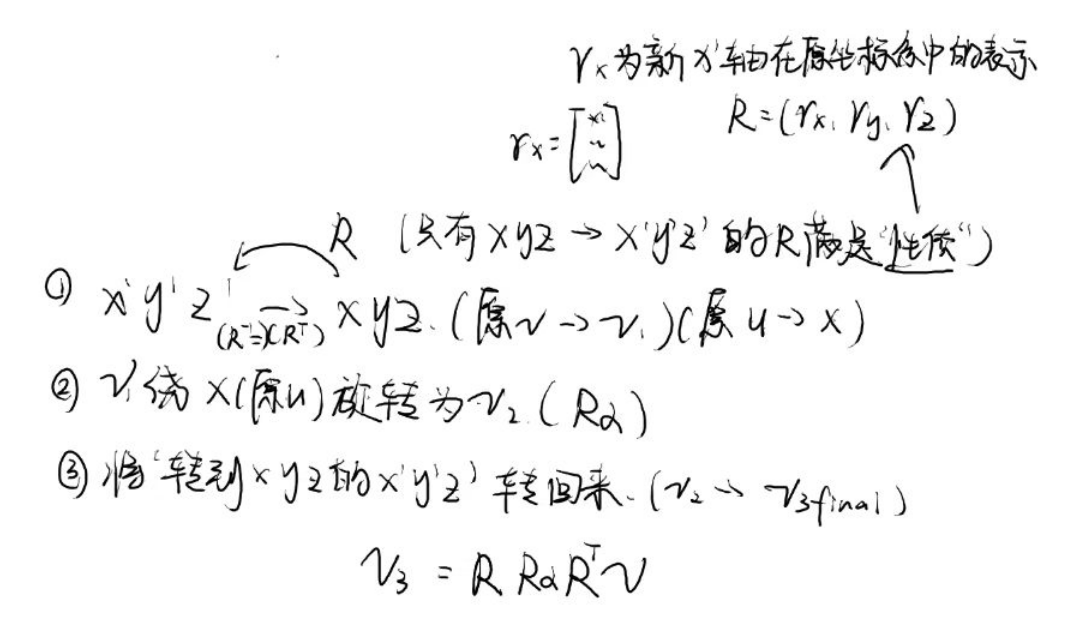 r_x为新x'轴在原坐标系中的表示
r_x=[x₁ ~ ~] R=(r_x, r_y, r_z)
R (只有xyz→x'y'z'的R满足"性质")
① x'y'z' →(R⁻¹=)(R^T) xyz.(原v→v₁)(原u→x)
② v₁绕x(原u)旋转为v₂.(Rα)
③ 将"转到xyz的x'y'z'"转回来.(v₂→v₃final)
v₃ = R Rα R^T v